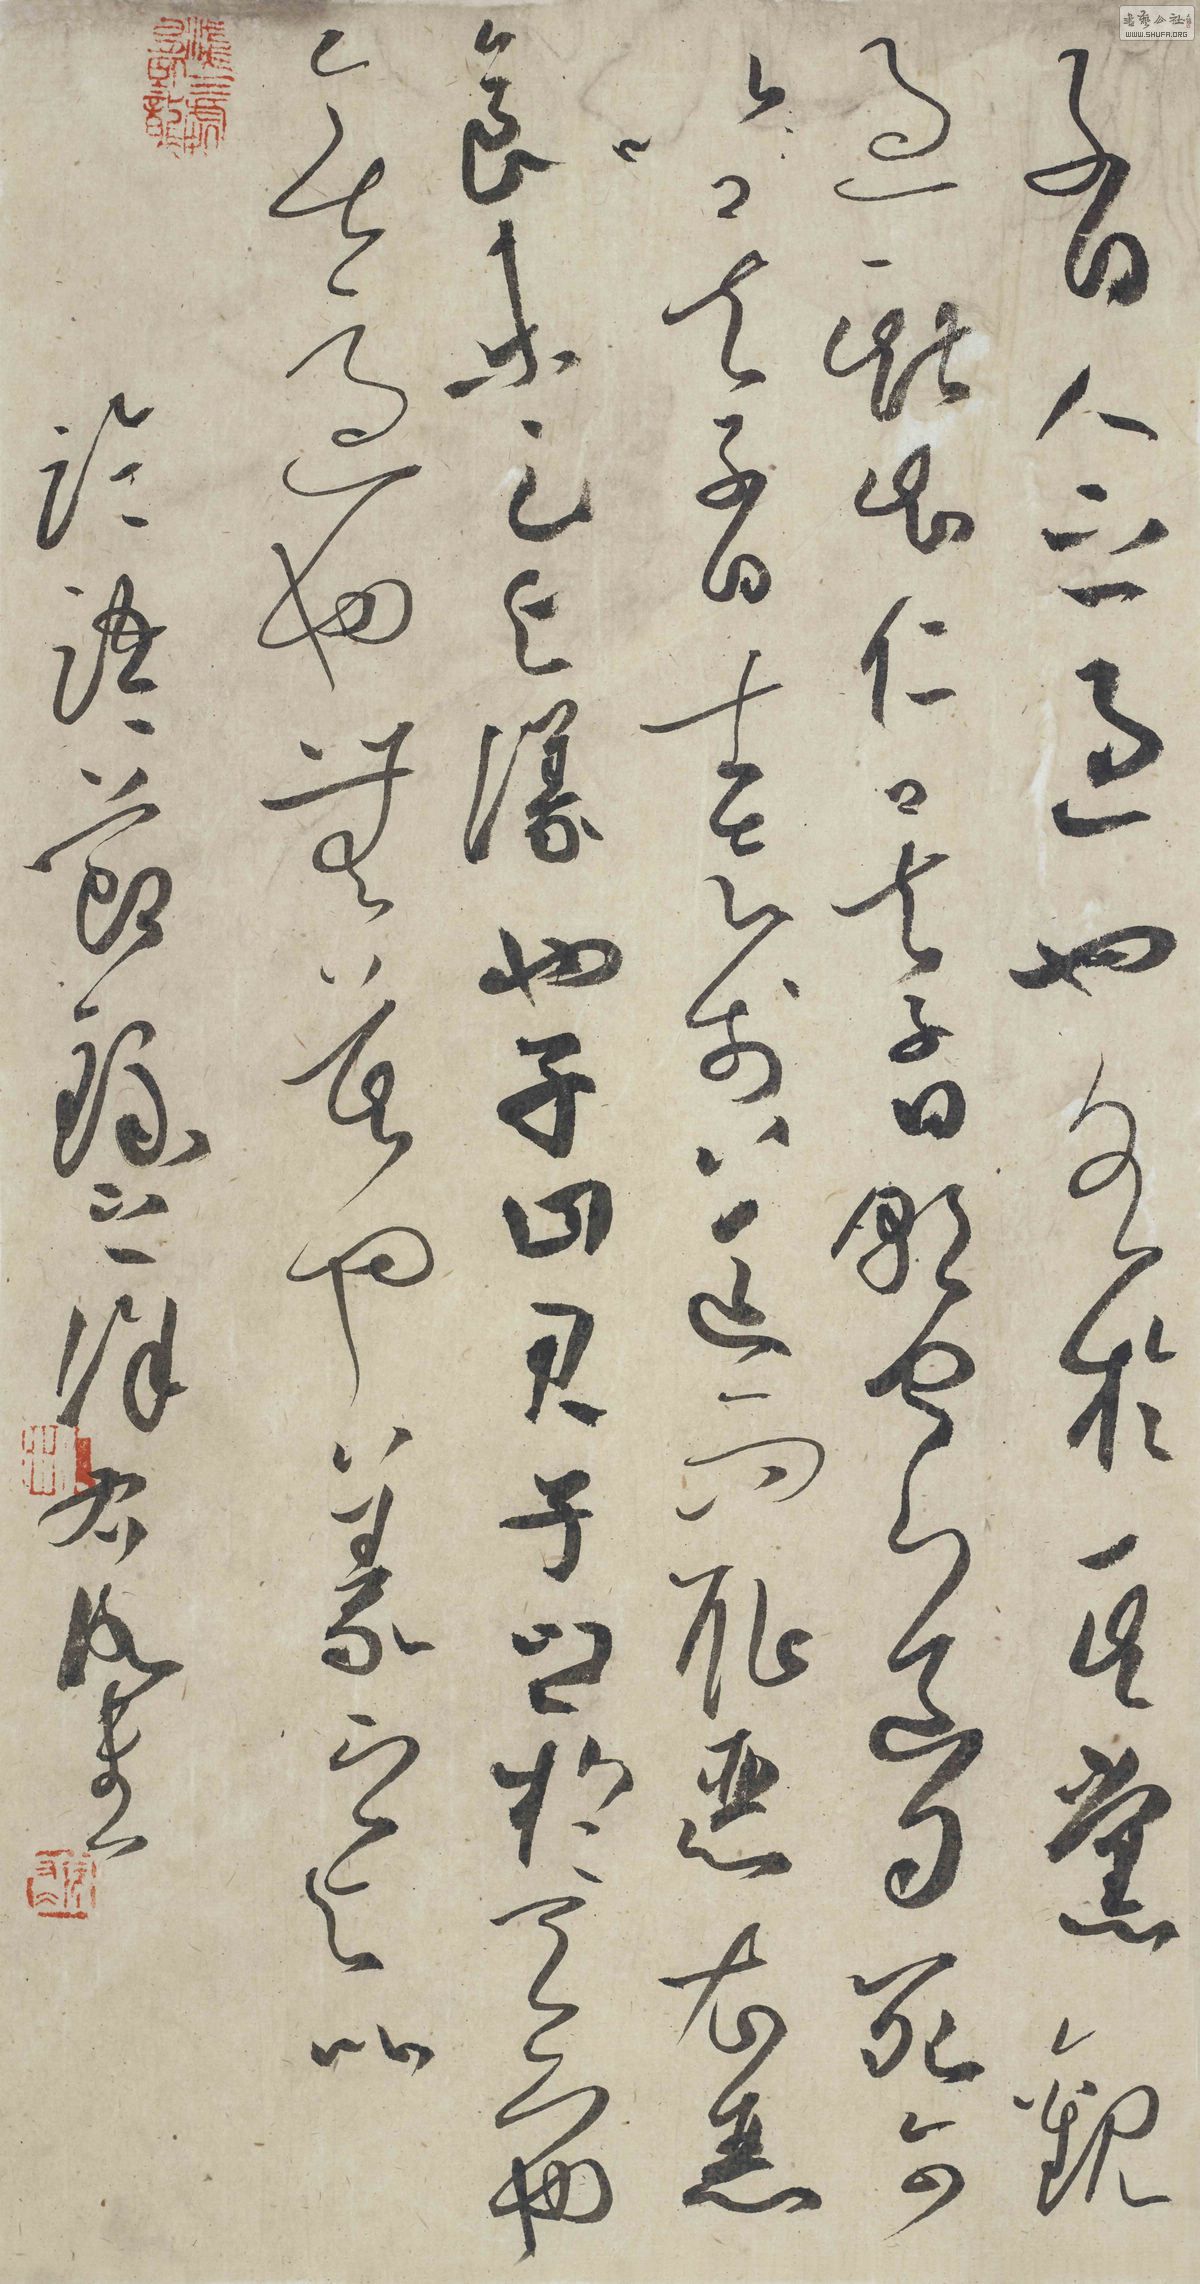 子曰人之過也各於其黨觀
過斯知仁矣子曰朝聞道夕死可
矣子曰士志於道而恥惡衣惡
食者未足與議也子曰君子之於天下也
無適也無莫也義之與比
論語節錄
書藝公社
WWW.SHUFA.ORG